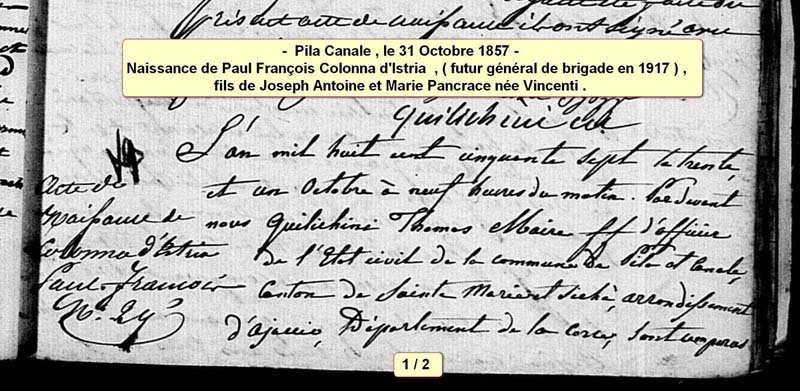 pris et acte de naissance ils ont signé avec
- Pila Canale , le 31 Octobre 1857 -
Naissance de Paul François Colonna d'Istria , ( futur général de brigade en 1917 ) ,
fils de Joseph Antoine et Marie Pancrace née Vincenti .
Quilichini
Acte de
Naissance de
Colonna d'Istria
Paul-François
N.° 29
L'an mil huit cent cinquante sept le trente
et un Octobre à neuf heures du matin. Pardevant
nous Quilichini Thomas Maire ff d'officier
de l'Etat civil de la commune de Pila et Canale,
Canton de Sainte Marie et Siché, arrondissement
d'ajaccio, Département de la Corse, sont comparus
1 / 2